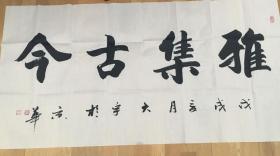 雅集古今
戊戌亥月大於京華